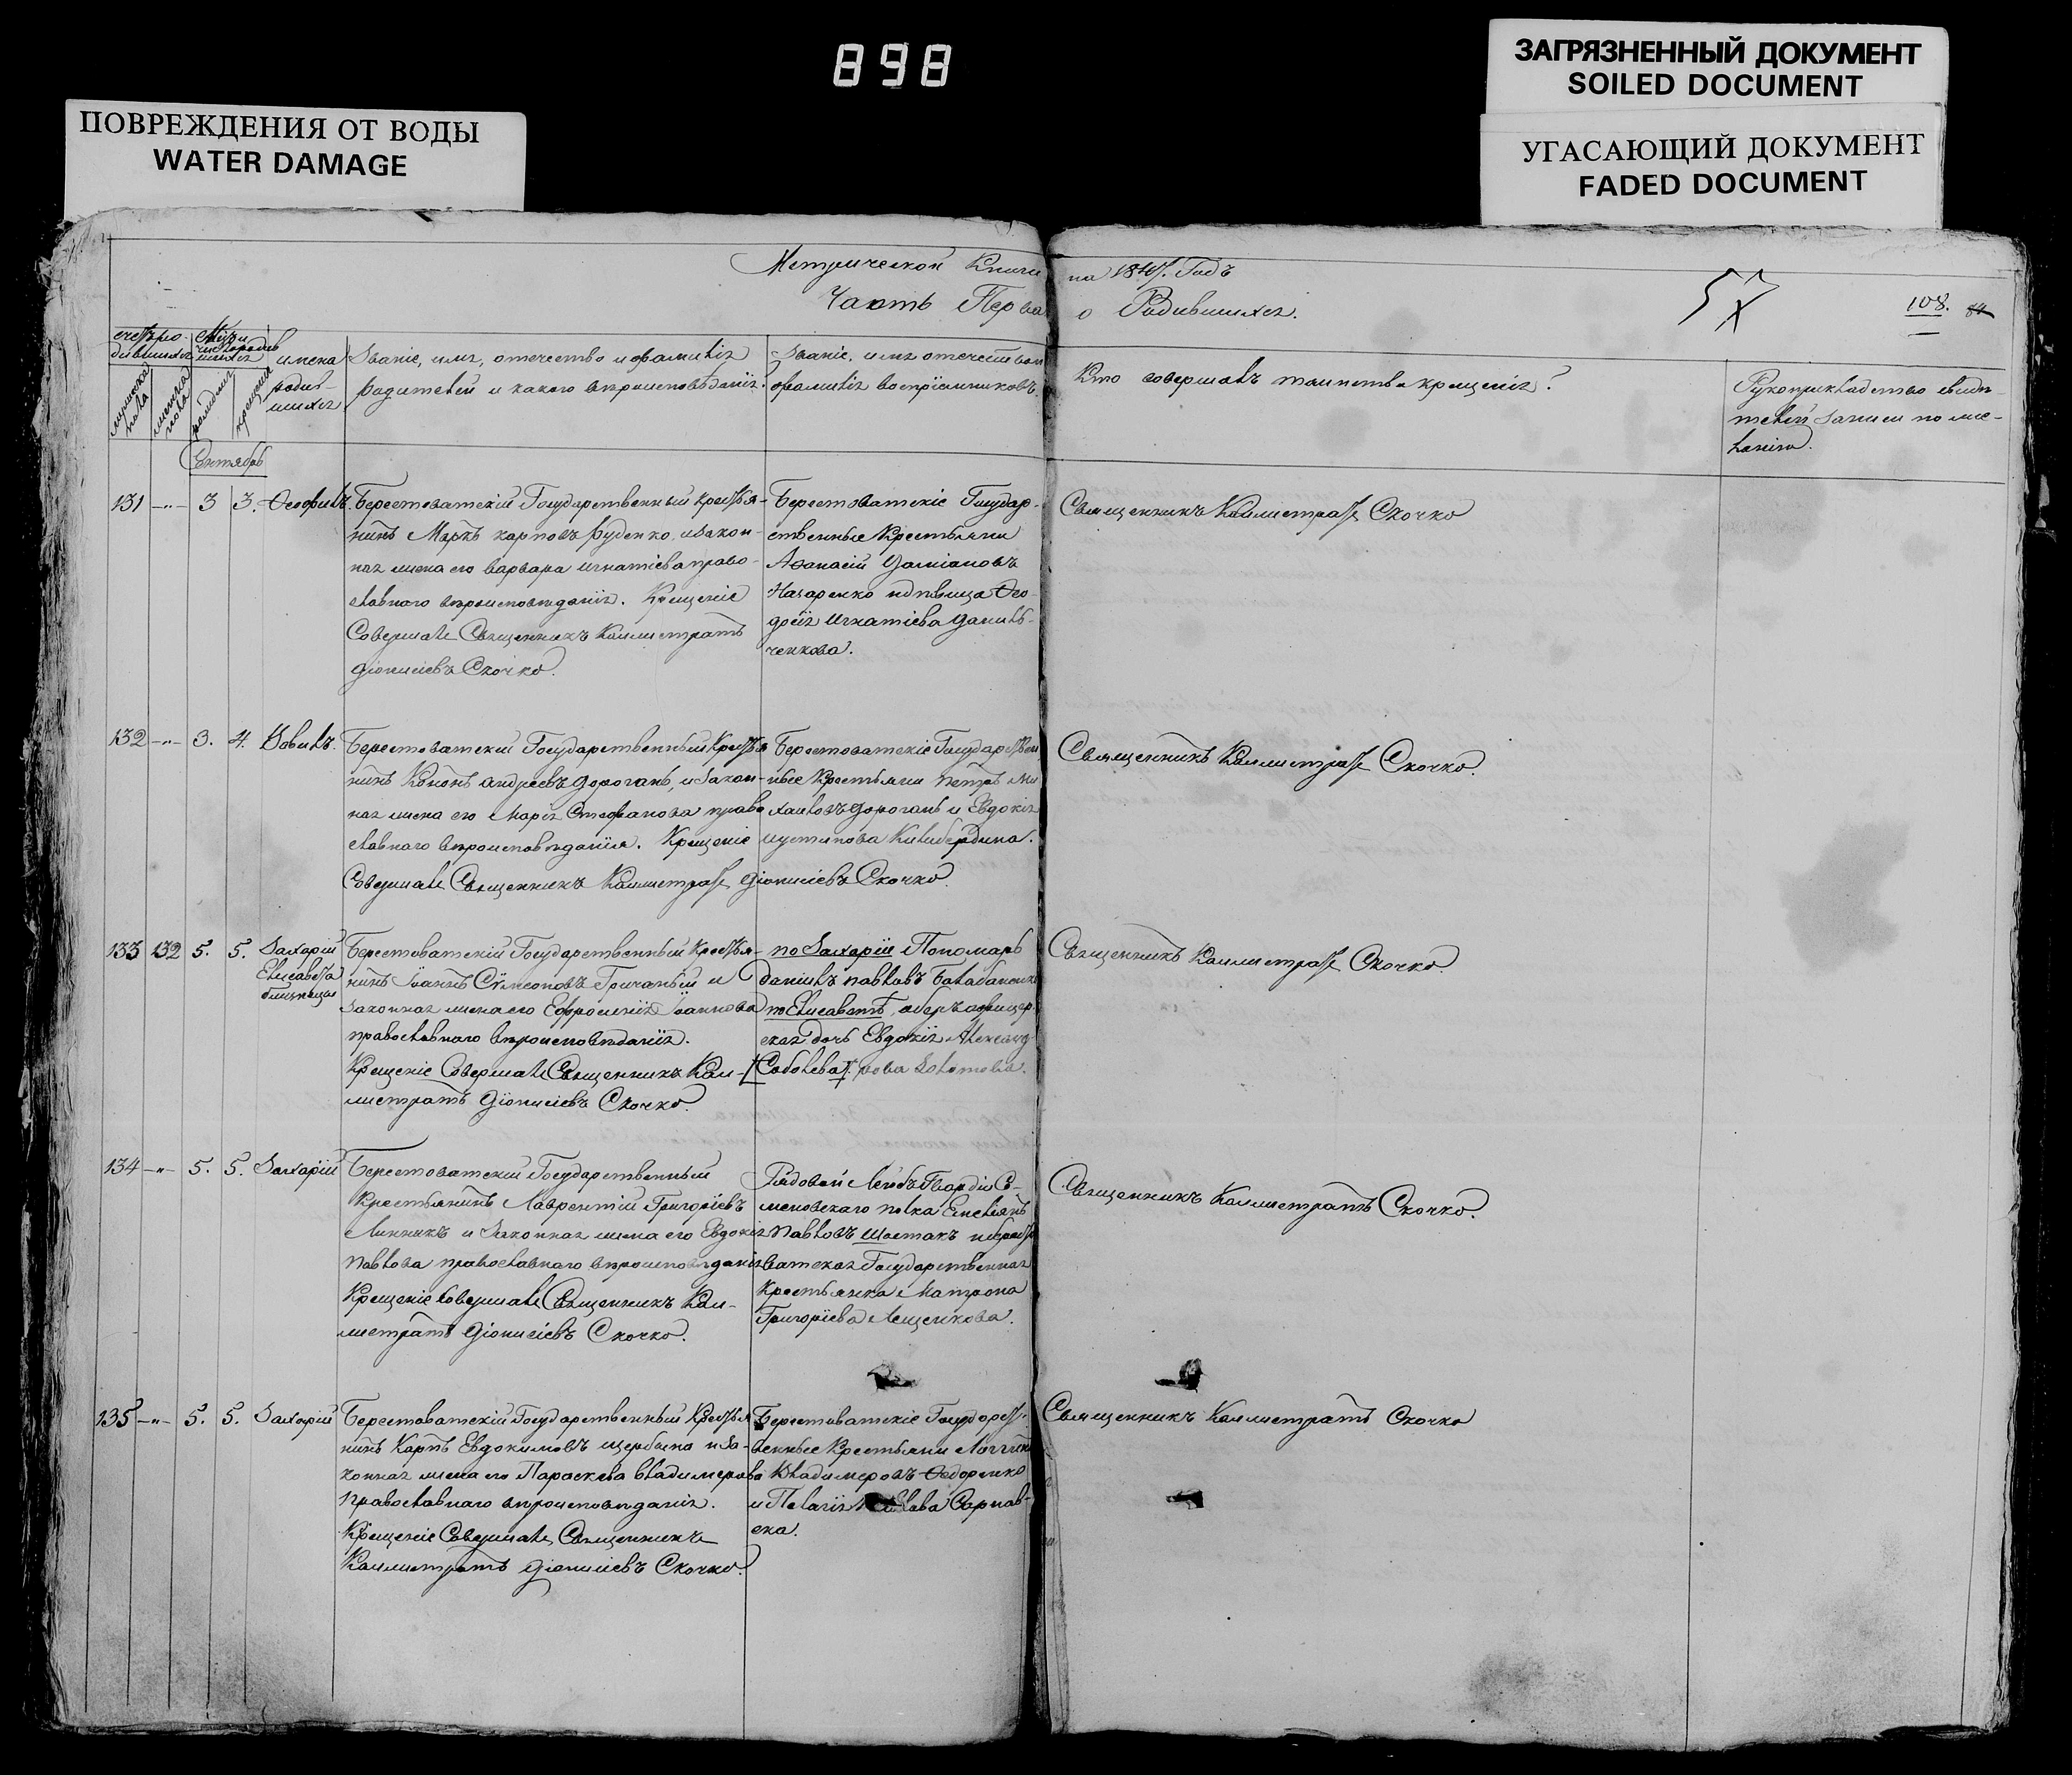 898
ПОВРЕЖДЕНИЯ ОТ ВОДЫ
WATER DAMAGE
ЗАГРЯЗНЕННЫЙ ДОКУМЕНТ
SOILED DOCUMENT
УГАСАЮЩИЙ ДОКУМЕНТ
FADED DOCUMENT
Метрической Книги на 1847. Годъ
Часть Перва о Родившихся.
57
108. 84
счетъ ро-
дившихся
мужеска
пола
женска
пола
Мѣзцъ и
число
рожденія
крещенія
имена
родив-
шихся
Званіе, имя, отечество и фамилія
родителей и какого вѣроисповѣданія.
Званіе, имя отечество и
фамилія воспріемниковъ.
Кто совершалъ таинство крещенія?
Рукоприкладство свидѣ-
телей записи по же-
ланію.
Сентябрь
131 -"- 3 3. Ѳеофилъ.
Берестоватскій Государственный крестья-
нинъ Маркъ карповъ руденко, и закон-
ная жена его варвара игнатіева право-
славного вѣроисповѣданія. Крещеніе
Совершалъ Священникъ Каллистратъ
діонисіевъ Скочко.
Берестоватскіе Государ-
ственные Крестьяни
Аѳанасій Даміановъ
Назаренко и дѣвица Ѳео-
досія игнатіева даниль-
ченкова.
Священникъ Каллистратъ Скочко
132 -"- 3. 4. Вавилъ.
Берестоватскій Государственный Крестья
нинъ Кононъ андреевъ дорогань, и закон-
ная жена его Марія Стефанова право
славного вѣроисповѣданія. Крещеніе
Совершалъ Священникъ Каллистратъ діонисіевъ Скочко.
Берестоватскіе Государствен
ные Крестьяни петръ Ми
хаиловъ дорогань и Евдокія
иустинова Килибердина.
Священникъ Каллистратъ Скочко.
133 132 5. 5. Захарій
Елисавета
близнецы
Берестоватскій Государственный Крестья-
нинъ Іоаннъ Сѵмеоновъ Гричаный и
законная жена его Ефросинія Іоаннова
православного вѣроисповѣданія.
Крещеніе Совершалъ Священникъ Кал-
листратъ діонисіевъ Скочко.
по Захаріи Пономарь
даніилъ павловъ
по Елисаветѣ, оберъ офицер-
ская дочь Евдокія Александ
Соболева рова
Священникъ Каллистратъ Скочко.
134 -"- 5. 5. Захарій
Берестоватскій Государственный
Крестьянинъ Лаврентій Григоріевъ
Линникъ и Законная жена его Евдокія
павлова православного вѣроисповѣданія
Крещеніе совершалъ Священникъ Кал-
листратъ діонисіевъ Скочко.
Рядовой Лейбъ Гвардіи Се-
меновскаго полка Емеліянъ
павловъ шостакъ и берестo
ватская Государственная
крестьянка Матрона
Григоріева Лещенкова.
Священникъ Каллистратъ Скочко.
135 -"- 5. 5. Захарій
Берестоватскій Государственный Крестья
нинъ Карпъ Евдокимовъ щербина и за-
конная жена его Параскева владимерова
православного вѣроисповѣданія.
Крещеніе Совершалъ Священникъ
Каллистратъ діонисіевъ Скочко.
Берестоватскіе Государст-
венные Крестьяни Логгинъ
Владимеровъ Ѳедоренко
и Пелагія
ска.
Священникъ Каллистратъ Скочко